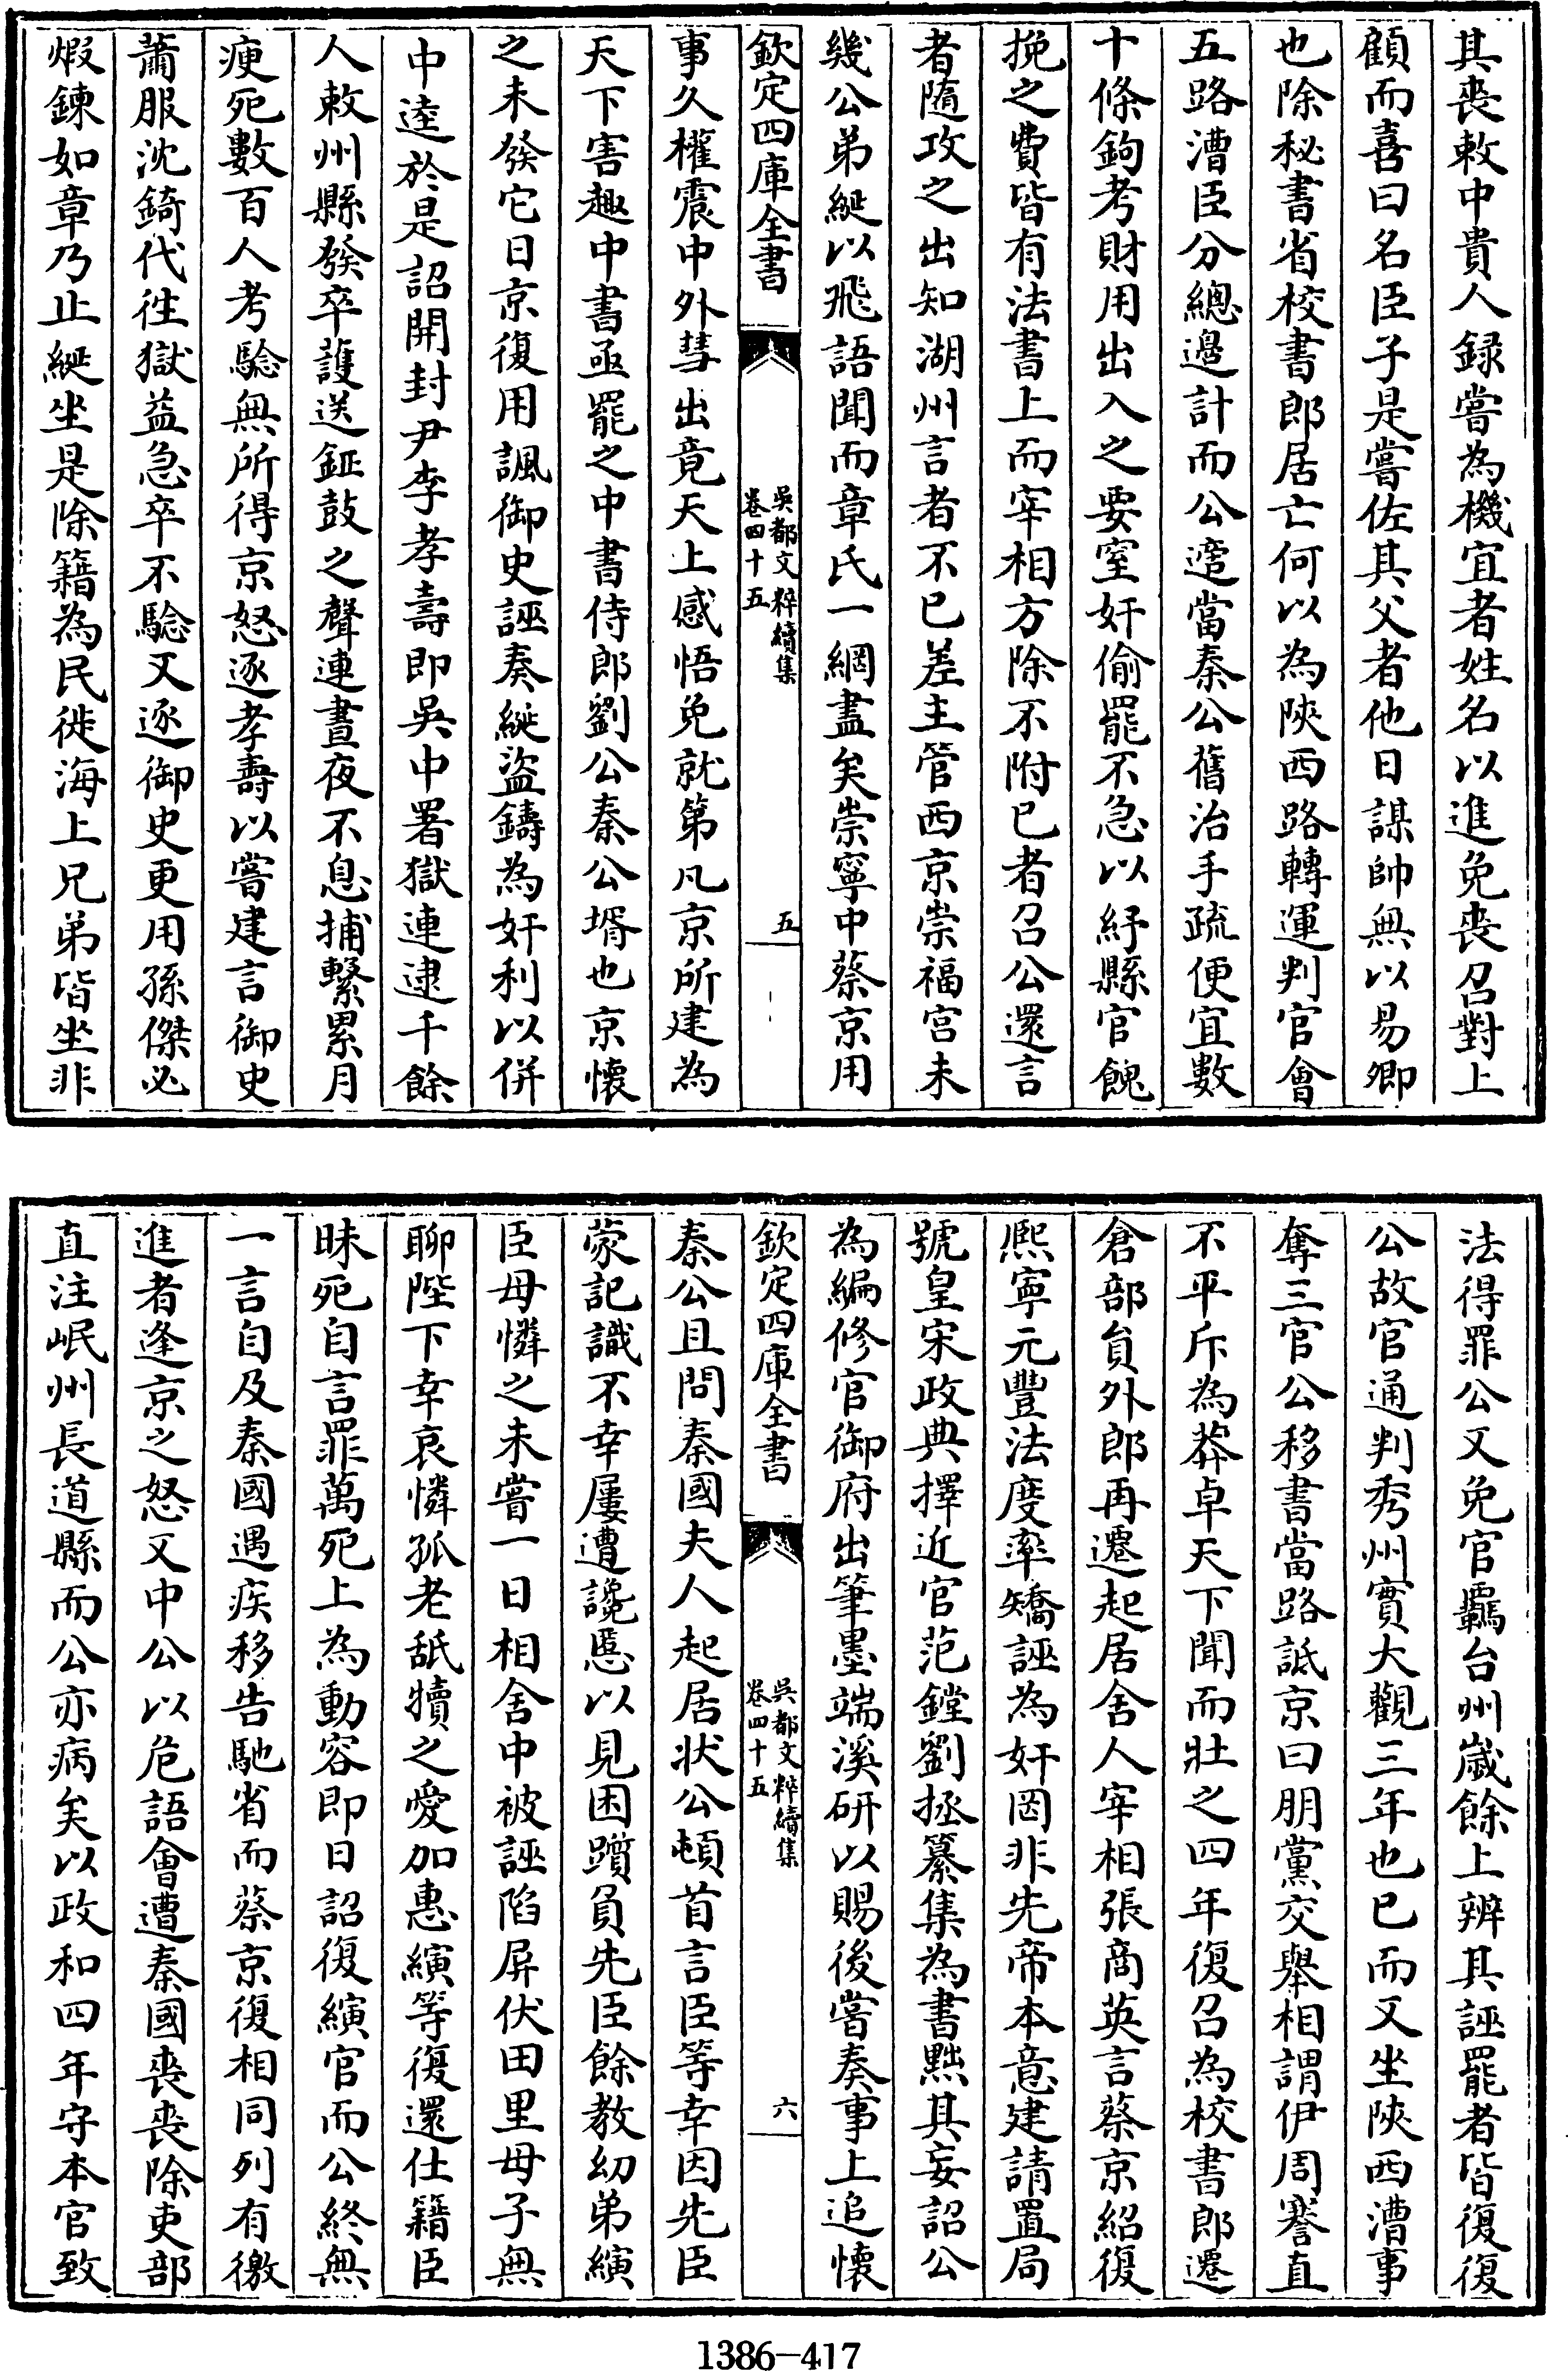 其喪敕中貴人録嘗為機宜者姓名以進免喪召對上
顧而喜曰名臣子是嘗佐其父者他日謀帥無以易卿
也除秘書省校書郎居亡何以為陝西路轉運判官會
五路漕臣分總邊計而公適當秦公舊治手疏便宜數
十條鉤考財用出入之要窒奸偷罷不急以紓縣官餽
挽之費皆有法書上而宰相方除不附已者召公還言
者隨攻之出知湖州言者不已差主管西京崇福宮未
幾公弟綖以飛語聞而章氏一網盡矣崇寧中蔡京用
欽定四庫全書
吳都文粹續集
卷四十五
五
事久權震中外彗出竟天上感悟免就第凡京所建為
天下害趣中書亟罷之中書侍郎劉公秦公壻也京懷
之未發它日京復用諷御史誣奏綖盜鑄為奸利以併
中逵於是詔開封尹李孝壽即吳中署獄連逮千餘
人敕州縣發卒護送鉦鼓之聲連晝夜不息捕繫累月
瘐死數百人考騐無所得京怒逐孝壽以嘗建言御史
蕭服沈錡代往獄益急卒不騐又逐御史更用孫傑必
煅鍊如章乃止綖坐是除籍為民徙海上兄弟皆坐非
法得罪公又免官羈台州嵗餘上辨其誣罷者皆復復
公故官通判秀州實大觀三年也已而又坐陝西漕事
奪三官公移書當路詆京曰朋黨交舉相謂伊周謇直
不平斥為莽卓天下聞而壯之四年復召為校書郎遷
倉部貟外郎再遷起居舍人宰相張商英言蔡京紹復
熙寧元豐法度率矯誣為奸罔非先帝本意建請置局
號皇宋政典擇近官范鏜劉拯纂集為書黜其妄詔公
為編修官御府出筆墨端溪研以賜後嘗奏事上追懷
欽定四庫全書
吳都文粹續集
卷四十五
六
秦公且問秦國夫人起居状公頓首言臣等幸因先臣
蒙記識不幸屢遭讒慝以見困躓負先臣餘教幼弟縯
臣母憐之未嘗一日相舍中被誣陷屏伏田里母子無
聊陛下幸哀憐孤老舐犢之愛加惠縯等復還仕籍臣
昧死自言罪萬死上為動容即日詔復縯官而公終無
一言自及秦國遇疾移告馳省而蔡京復相同列有徼
進者逢京之怒又中公以危語會遭秦國喪喪除吏部
直注岷州長道縣而公亦病矣以政和四年守本官致
1386-417